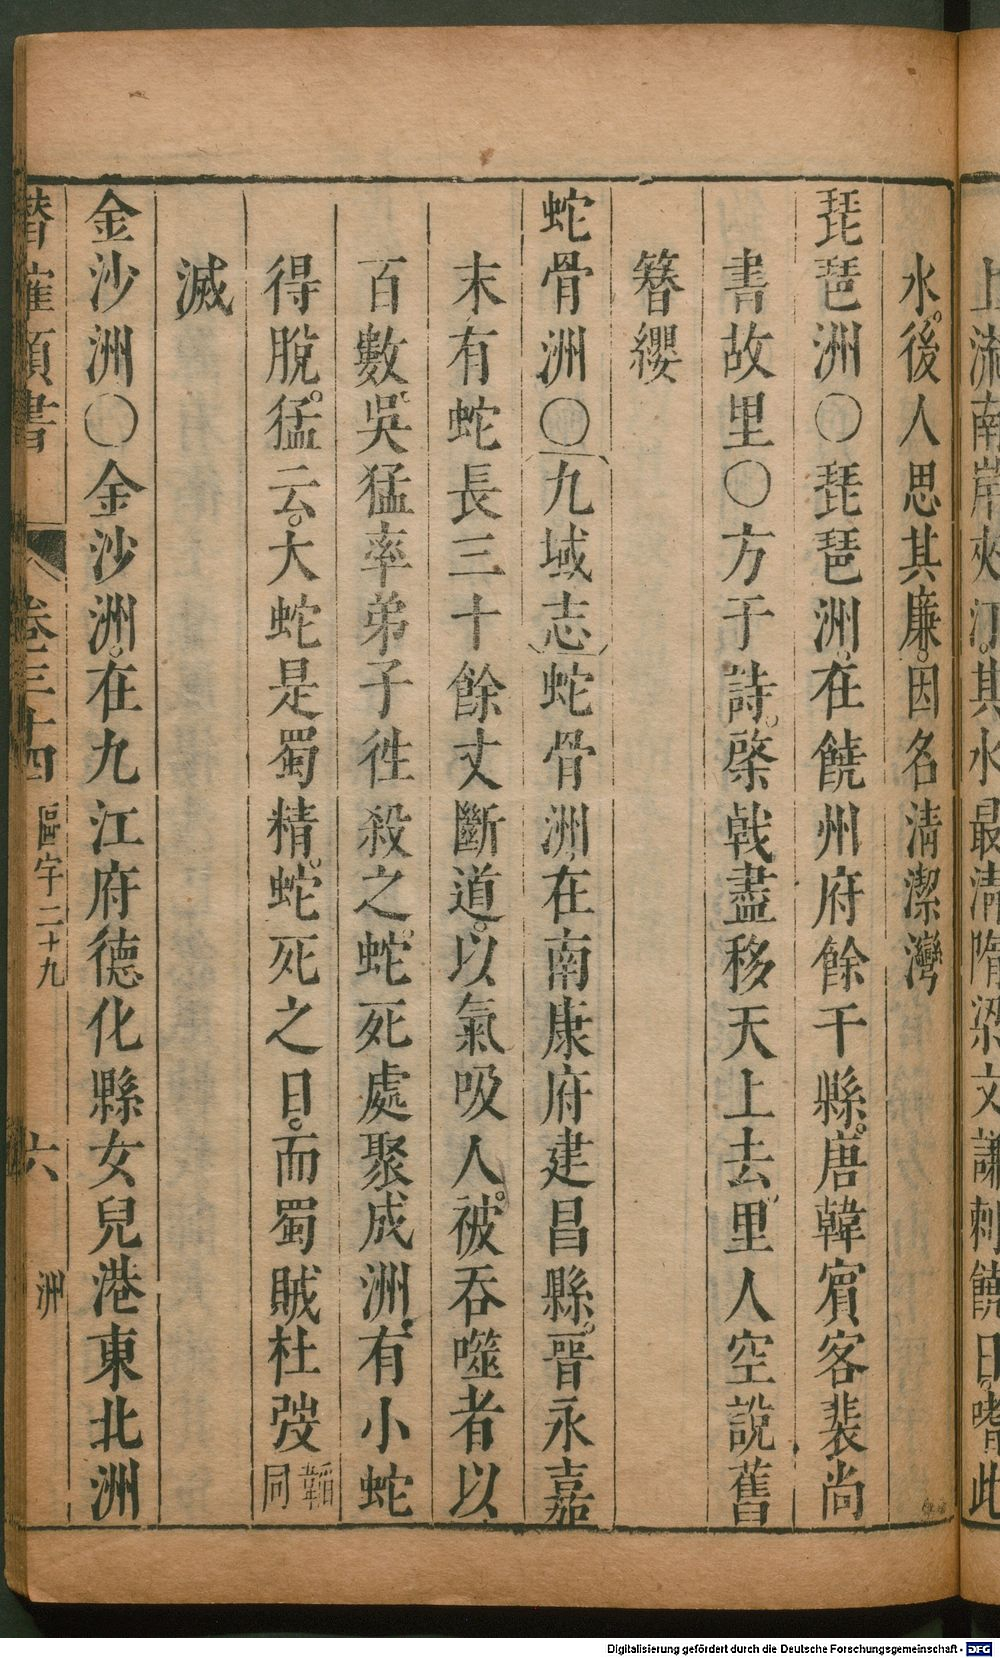 上流南岸夾江其水最清隋梁文謙刺饒日嗜此
水後人思其廉因名清潔灣
琵琶洲〇琵琶洲在饒州府餘干縣唐韓賓客裴尚
書故里〇方于詩棨戟盡移天上去里人空說舊
簪纓
蛇骨洲〇九域志蛇骨洲在南康府建昌縣晉永嘉
末有蛇長三十餘丈斷道以氣吸人被吞噬者以
百數吳猛率弟子徃殺之蛇死處聚成洲有小蛇
得脫猛云大蛇是蜀精蛇死之日而蜀賊杜弢韜同
滅
金沙洲〇金沙洲在九江府德化縣女兒港東北洲
潛確類書 卷三十四 區宇二十九 六 洲
Digitalisierung gefördert durch die Deutsche Forschungsgemeinschaft - DFG